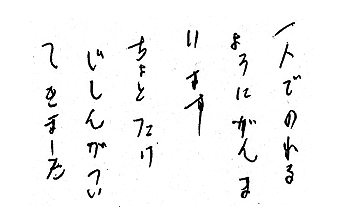 一人でのれる
ようにがんま
います
ちょとだけ
じしんがつい
てきました